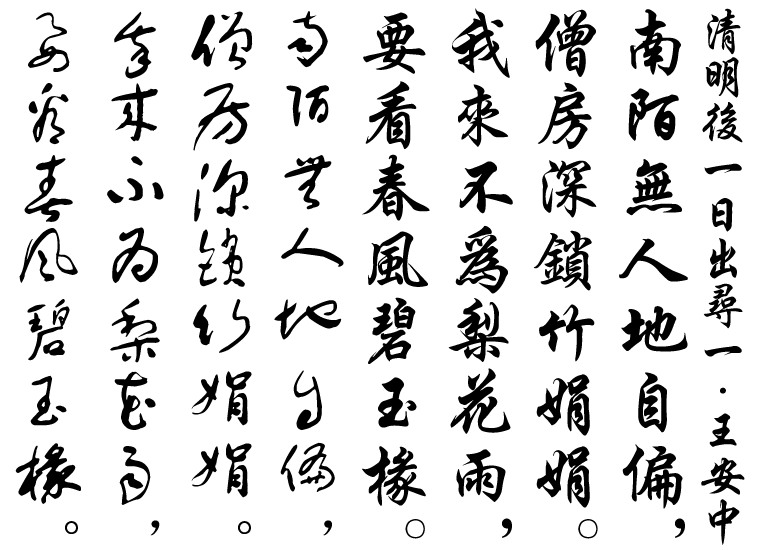 清明後一日出尋一·王安中
南陌無人地自偏，
僧房深鎖竹娟娟。
我來不為梨花雨，
要看春風碧玉椽。
南陌無人地自偏，
僧房深鎖竹娟娟。
我來不為梨花雨，
要看春風碧玉椽。